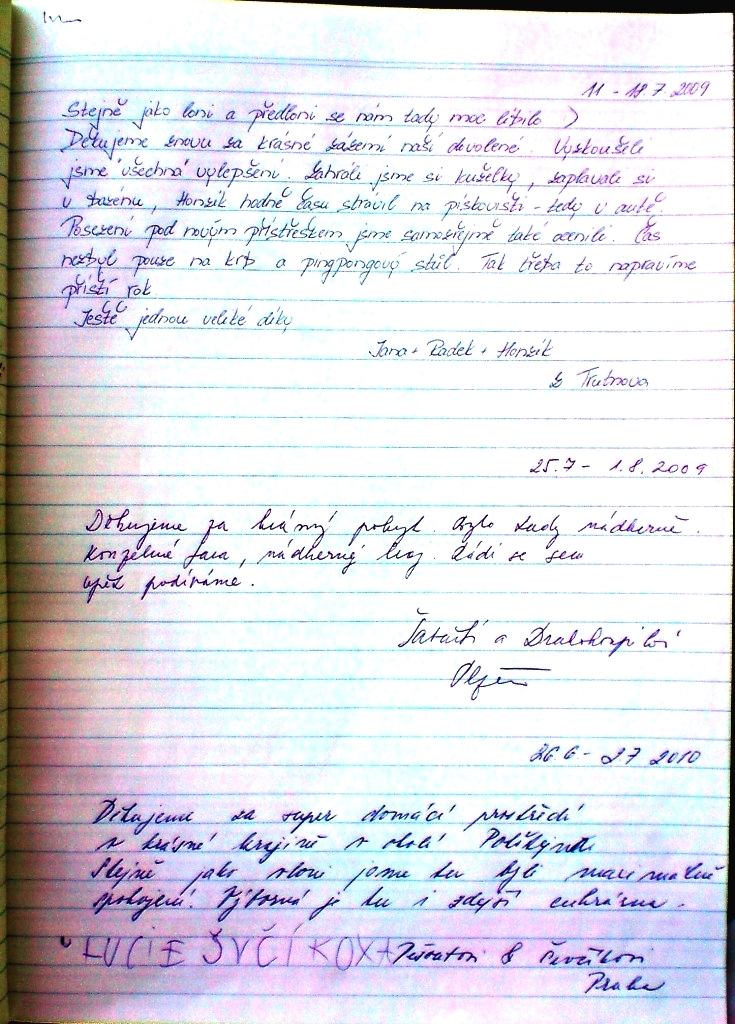 11 - 18.7.2009
Stejně jako loni a předloni se nám tady moc líbilo :)
Děkujeme znovu za krásné zázemí naší dovolené. Vyzkoušeli
jsme všechna vylepšení. Zahráli jsme si kuželky, zaplavali si
v bazénu, Honzík hodně času strávil na pískovišti - tedy v autě.
Posezení pod novým přístřeškem jsme samozřejmě také ocenili. Čas
nezbyl pouze na krb a pingpongový stůl. Tak třeba to napravíme
příští rok.
Ještě jednou veliké díky
Jana + Radek + Honzík
z Trutnova
25.7 - 1.8.2009
Děkujeme za krásný pobyt. Bylo tady nádherně.
nádherný kraj. Rádi se sem
opět podíváme.
a Drahokoupilovi
Plzeň
26.6 - 2.7 2010
Děkujeme za super domácí prostředí
v krásné krajině v okolí
Stejně jako vloni jsme tu byli maximálně
spokojeni. Výborná je tu i zdejší cukrárna.
LUCIE ŠVČÍKOVA & Ševčíkovi
Praha